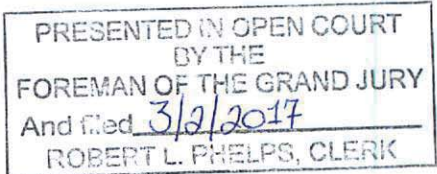 PRESENTED IN OPEN COURT
BY THE
FOREMAN OF THE GRAND JURY
And filed 3/2/2017
ROBERT L. PHELPS, CLERK